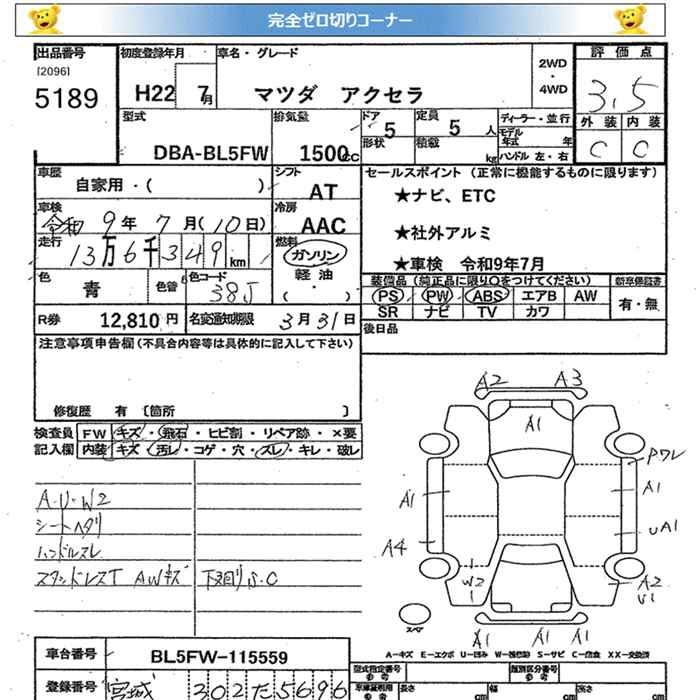 完全ゼロ切りコーナー
出品番号 初度登録年月 車名・グレード 2WD・4WD 評価点
[2096]
5189 H22 7月 マツダ アクセラ 3.5
型式 排気量 ドア 5 定員 5人 ディーラー・並行 外装 内装
DBA-BL5FW 1500cc 形状 積載 kg モデル年式 年 C C
ハンドル 左・右
車歴 シフト セールスポイント (正常に機能するものに限ります)
自家用・( ) AT ★ナビ、ETC
車検 令和9年7月(10日) 冷房 AAC ★社外アルミ
走行 13万6千349km 燃料 ガソリン ★車検 令和9年7月
軽油
( )
色 青 色替 色コード 38J
装備品 (純正品に限り○をつけてください) 新車保証書
PS PW ABS エアB AW 有・無
SR ナビ TV カワ
R券 12,810円 名変通知期限 3月31日 後日品
注意事項申告欄(不具合内容等は具体的に記入して下さい)
修復歴 有 〔箇所 〕
検査員 FW キズ・飛石・ヒビ割・リペア跡・×要
記入欄 内装 キズ・汚レ・コゲ・穴・スレ・キレ・破レ
A・U・W2
シートヘタリ
ハンドルスレ
スタッドレスT AWキズ 下回りS.C
A2 A3
A1
Pワレ
A1 A1
UA1
A4
W2 A2
U1
スペア
A1 A1 A1
A-キズ E-エクボ U-凹み W-補修跡 S-サビ C-腐食 XX-交換済
車台番号 BL5FW-115559
型式指定番号 参考 類別区分番号 参考
登録番号 宮城 302 た 5696
車庫証明用 参考 長さ cm 幅 cm 高さ cm